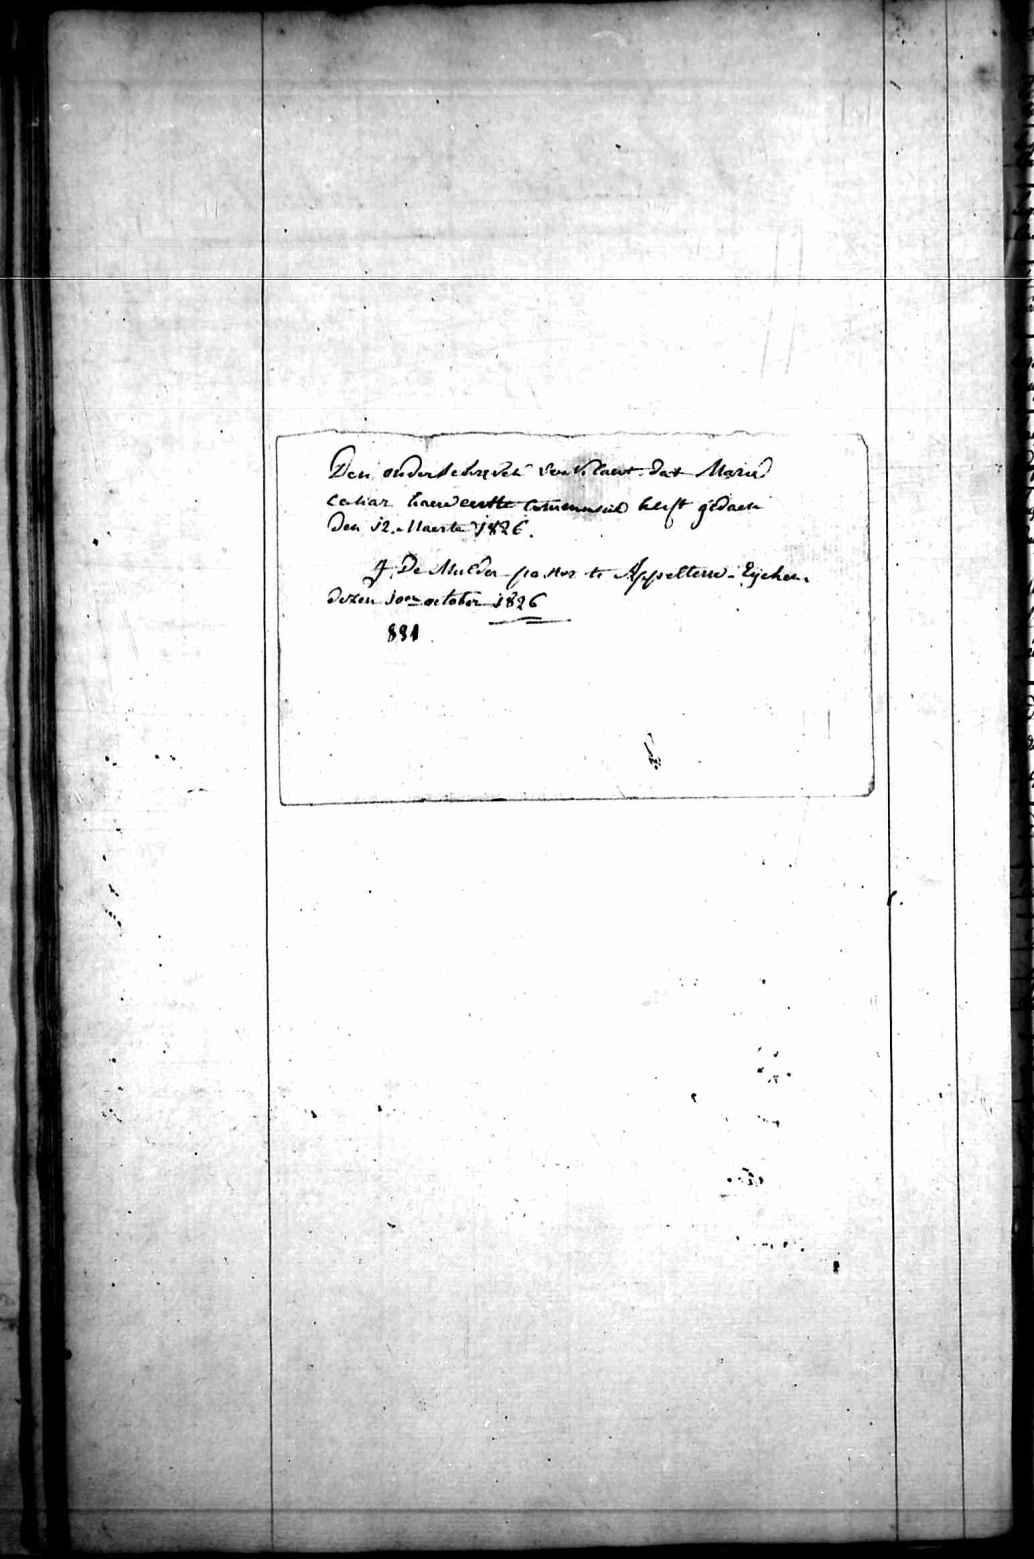 Den onderschreven verclaert dat Marie
Cathar. haer eerste Communie heeft gedaen
Den 12. Maerte 1826.
J. De Mulder pastor te Appelterre-Eychem.
dezen 10en october 1826
881